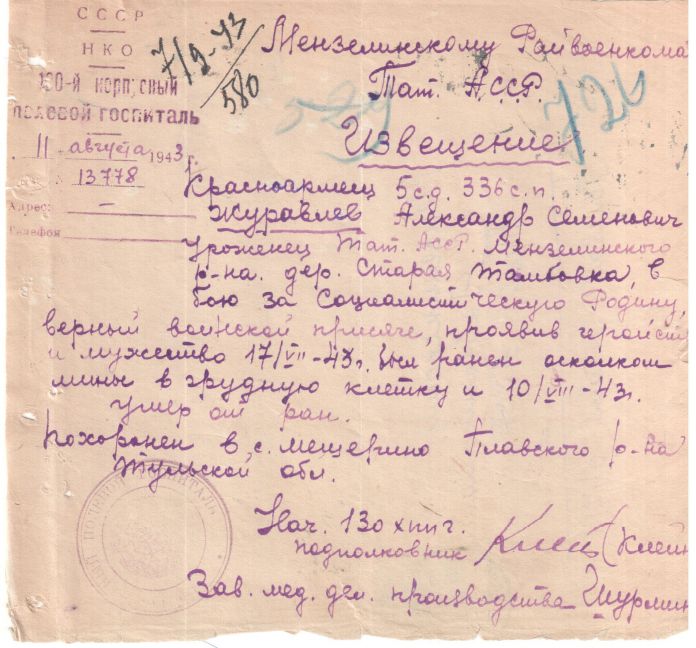 СССР
НКО
130-й корпусный
полевой госпиталь
11 августа 1943 г.
13778
Адрес: —
Телефон
7/9-43
580
529
726
Мензелинскому Райвоенкома
Тат. АССР.
Извещение
Красноармеец 5 с.д. 336 с.п.
Журавлев Александр Семенович
Уроженец Тат. АССР. Мензелинского
р-на. дер. Старая Тамбовка, в
бою за Социалистическую Родину,
верный воинской присяге, проявив геройст
и мужество 17/VII-43г. был ранен осколком
мины в грудную клетку и 10/VIII-43г.
умер от ран.
Похоронен в с. Мещерино Плавского р-на
Тульской обл.
ПОЛЕВОЙ ГОСПИТАЛЬ
Нач. 130 хппг.
подполковник (Клейн
Зав. мед. дел. производства